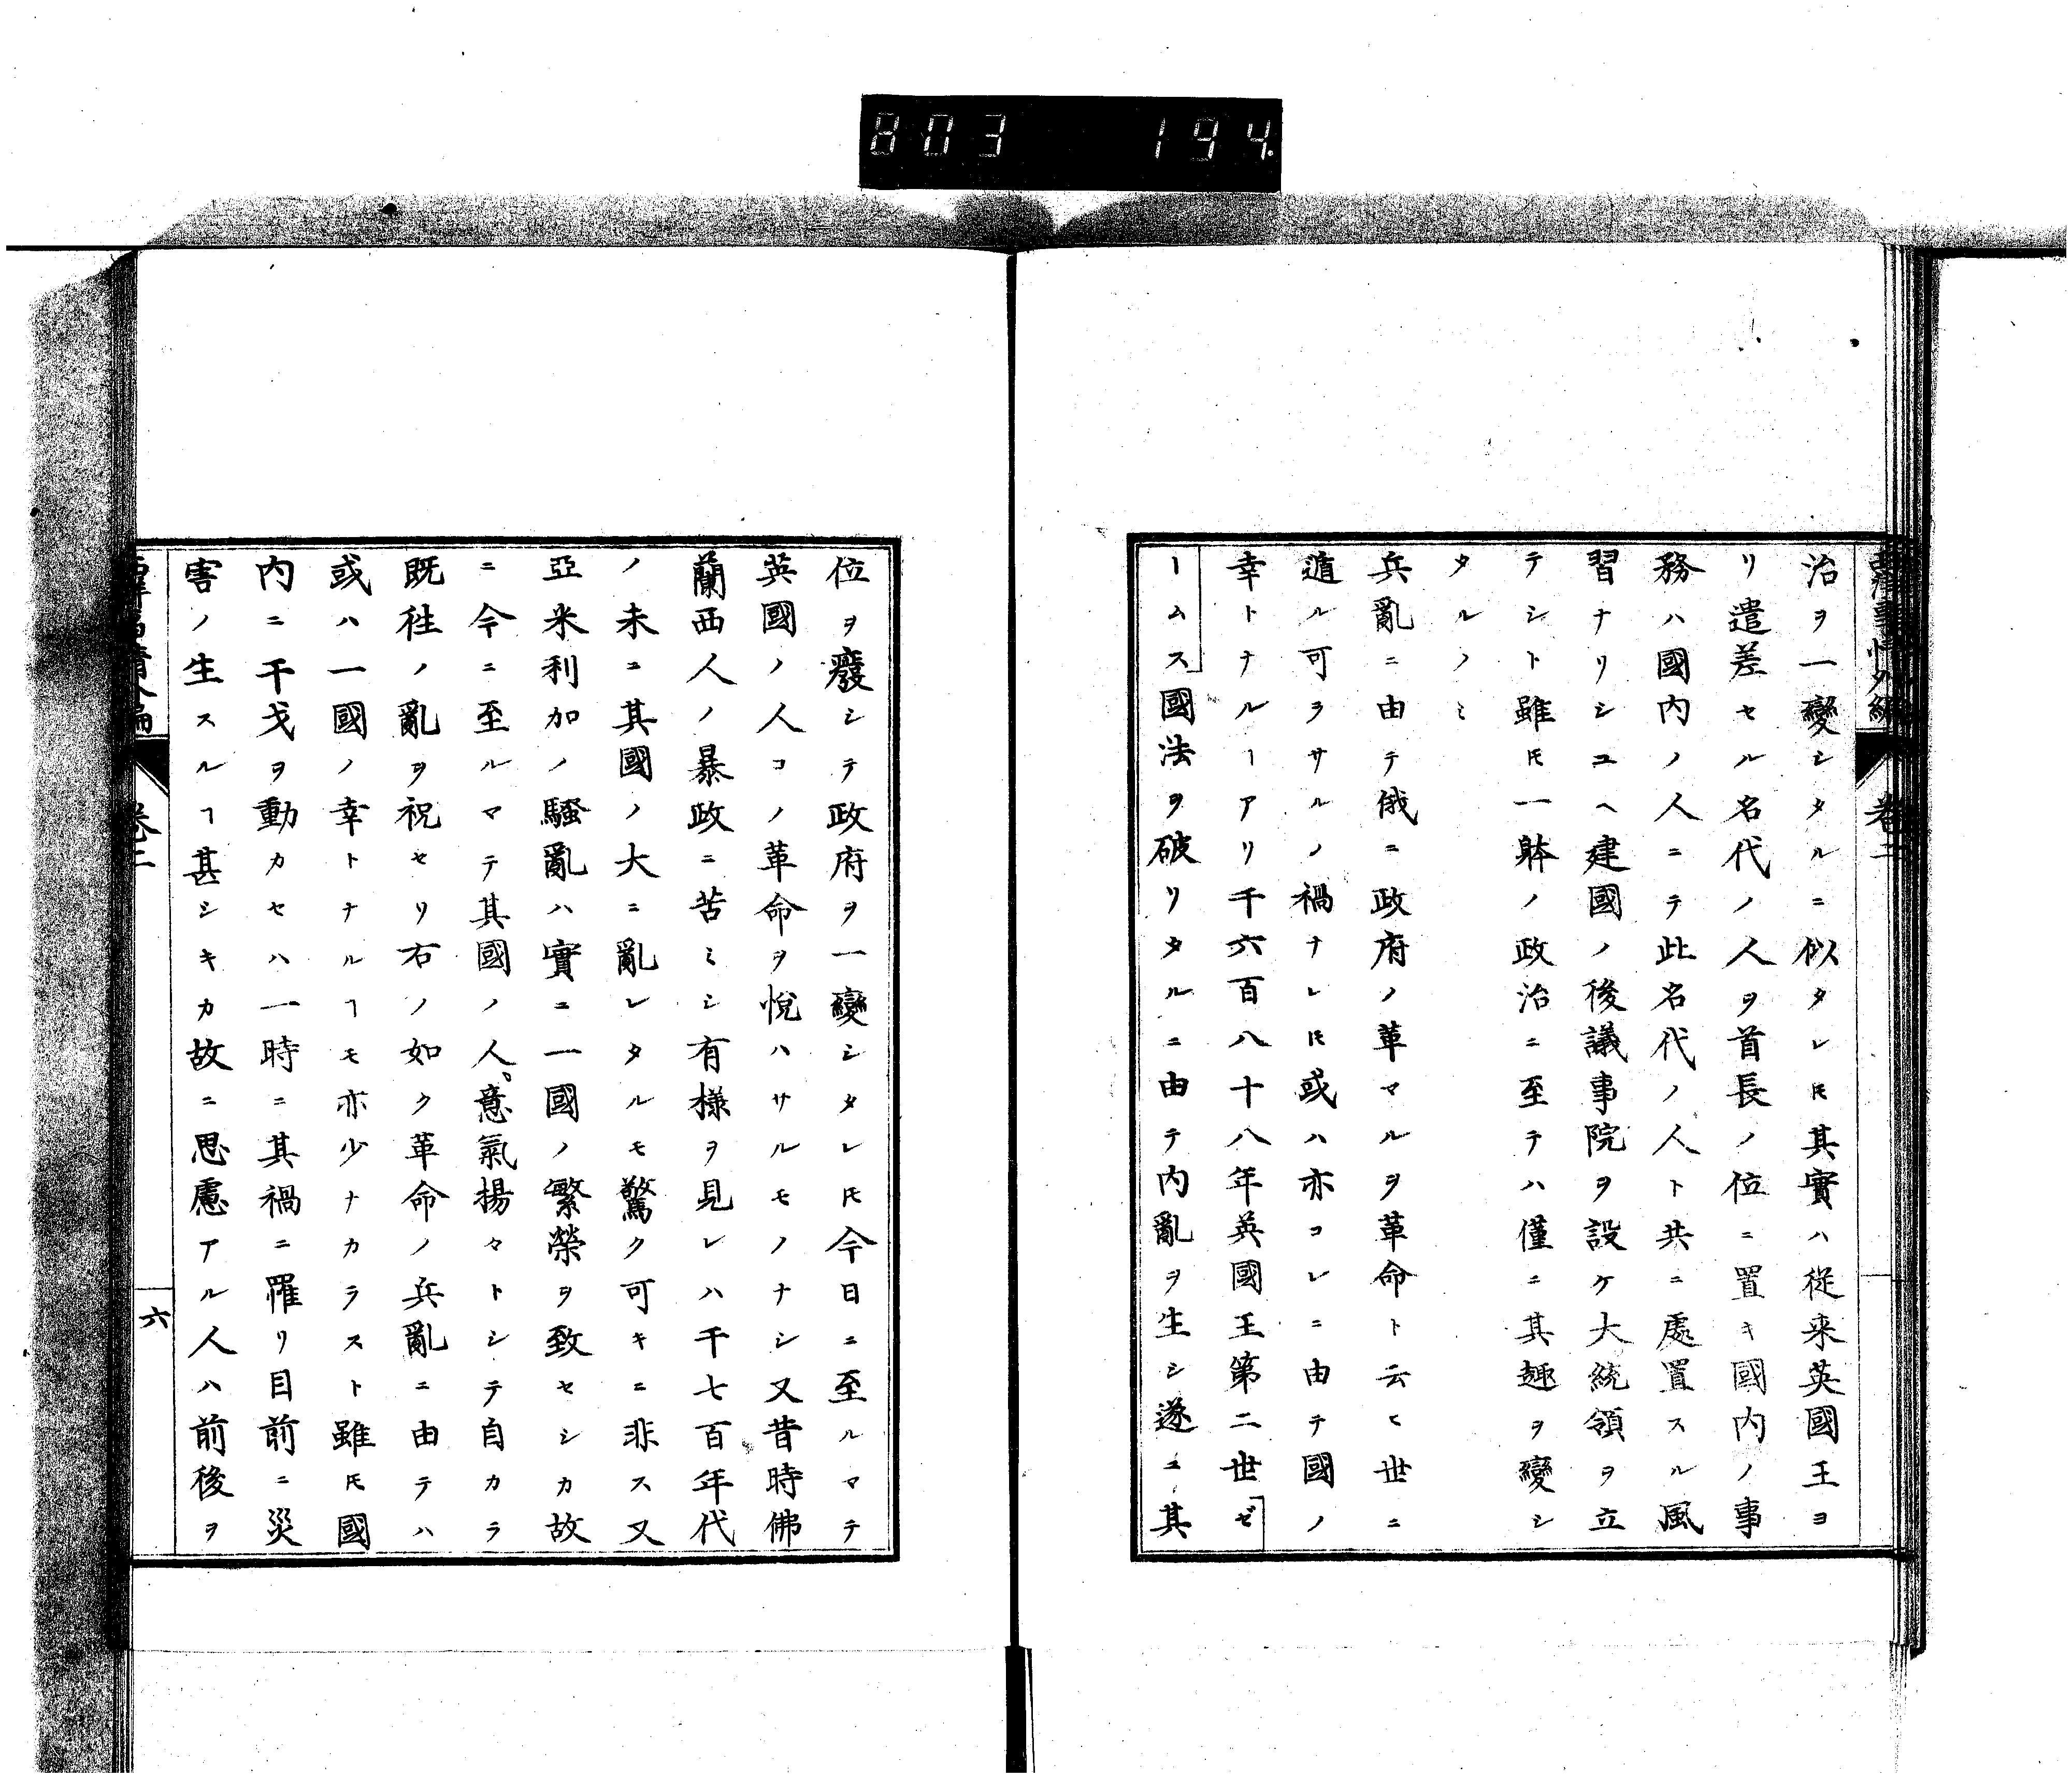 803 194
西洋事情外編 卷二
治ヲ一變シタルニ似タレ𪜈其實ハ從来英國王ヨ
リ遣差セル名代ノ人ヲ首長ノ位ニ置キ國内ノ事
務ハ國内ノ人ニテ此名代ノ人ト共ニ處置スル風
習ナリシユヘ建國ノ後議事院ヲ設ケ大統領ヲ立
テシト雖𪜈一躰ノ政治ニ至テハ僅ニ其趣ヲ變シ
タルノミ
兵亂ニ由テ俄ニ政府ノ革マルヲ革命ト云ヒ世ニ
遁ル可ラサルノ禍ナレ𪜈或ハ亦コレニ由テ國ノ
幸トナルヿアリ千六百八十八年英國王第二世ゼ
ームス國法ヲ破リタルニ由テ内亂ヲ生シ遂ニ其
位ヲ廢シテ政府ヲ一變シタレ𪜈今日ニ至ルマテ
英國ノ人コノ革命ヲ悅ハサルモノナシ又昔時佛
蘭西人ノ暴政ニ苦ミシ有様ヲ見レハ千七百年代
ノ末ニ其國ノ大ニ亂レタルモ驚ク可キニ非ス又
亞米利加ノ騷亂ハ實ニ一國ノ繁榮ヲ致セシカ故
ニ今ニ至ルマテ其國ノ人意氣揚々トシテ自カラ
既往ノ亂ヲ祝セリ右ノ如ク革命ノ兵亂ニ由テハ
或ハ一國ノ幸トナルヿモ亦少ナカラスト雖𪜈國
内ニ干戈ヲ動カセハ一時ニ其禍ニ罹リ目前ニ災
害ノ生スルヿ甚シキカ故ニ思慮アル人ハ前後ヲ
卷二
六